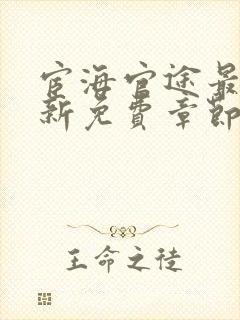 宦海官途最
新免費章節
王命之徒